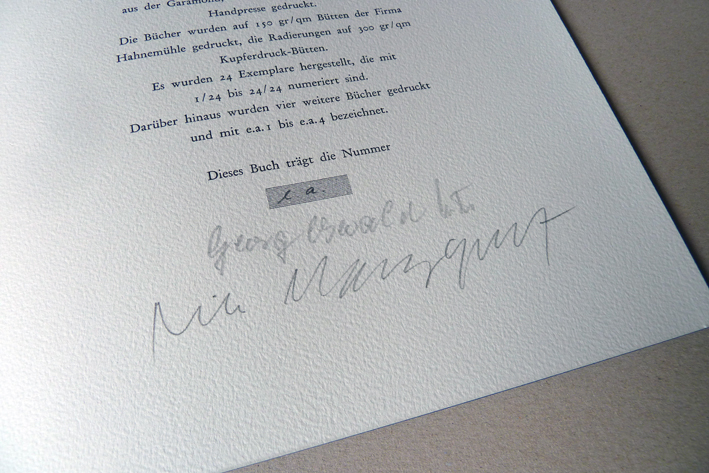 aus der Garamond,
Handpresse gedruckt.
Die Bücher wurden auf 150 gr/qm Bütten der Firma
Hahnemühle gedruckt, die Radierungen auf 300 gr/qm
Kupferdruck-Bütten.
Es wurden 24 Exemplare hergestellt, die mit
1/24 bis 24/24 numeriert sind.
Darüber hinaus wurden vier weitere Bücher gedruckt
und mit e.a.1 bis e.a.4 bezeichnet.
Dieses Buch trägt die Nummer
e a.
Georg Oswald